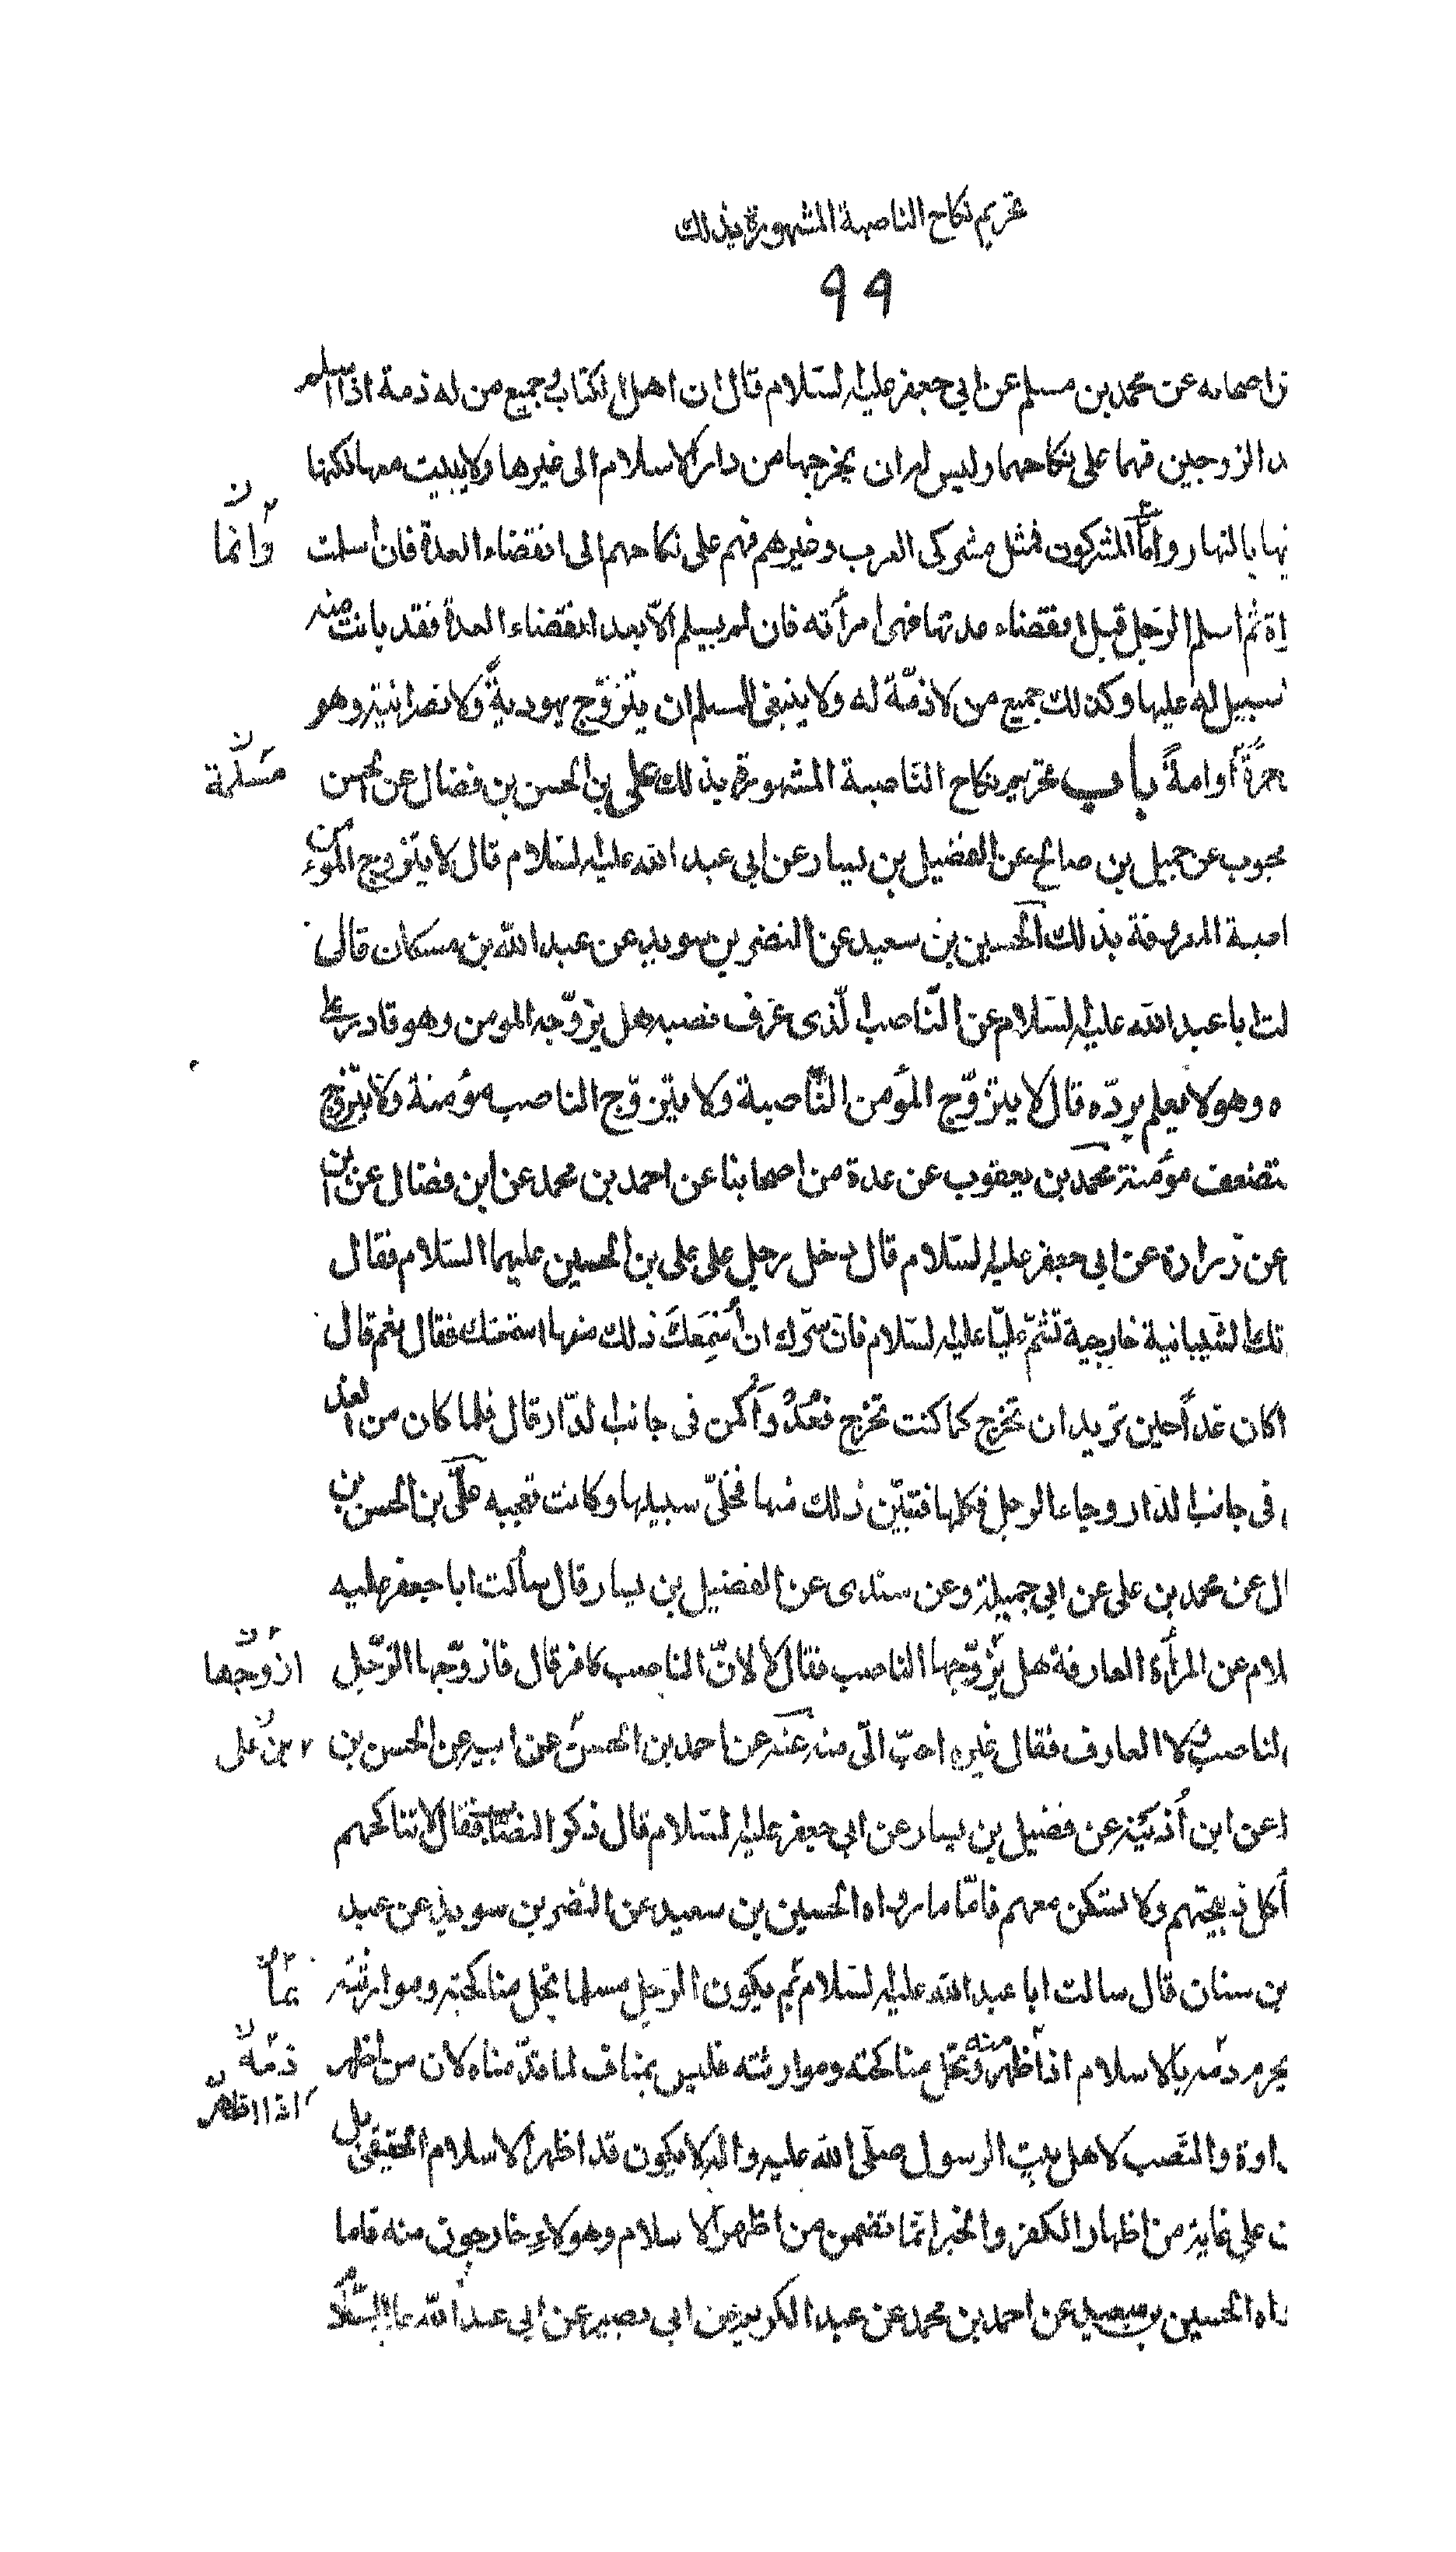 تحريم نكاح الناصبة المشهورة بذلك
٩٩
اصحابه عن محمد بن مسلم عن ابي جعفر عليه السلام قال ان اهل الكتاب وجميع من له ذمة اذا اسلم
الزوجين فهما على نكاحهما وليس له ان يخرجها من دار الاسلام الى غيرها ولا يبيت معها لكنها
بالنهار واما المشركون مثل مشركي العرب وغيرهم فهم على نكاحهم الى انقضاء العدة فان اسلمت
وانما
ثم اسلم الرجل قبل انقضاء عدتها فهي امرأته فان لم يسلم الا بعد انقضاء العدة فقد بانت منه
سبيل له عليها وكذلك جميع من لا ذمّة له ولا ينبغي للمسلم ان يتزوّج يهودية ولا نصرانية وهو
حرةً أو امةً باب تحريم نكاح الناصبة المشهورة بذلك علي بن الحسن بن فضال عن الحسن
مسلمة
محبوب عن جميل بن صالح عن الفضيل بن يسار عن ابي عبد الله عليه السلام قال لا يتزوج المؤمن
المعروفة بذلك الحسين بن سعيد عن النضر بن سويد عن عبد الله بن مسكان قال
ابا عبد الله عليه السلام عن الناصب الّذى عرف نصبه هل يزوّجه المومن وهو قادر على
وهو لا يعلم بردّه قال لا يتزوّج المؤمن النّاصبة ولا يتزوّج الناصب مؤمنة ولا يتزوج
مؤمنة محمد بن يعقوب عن عدة من اصحابنا عن احمد بن محمد عن ابن فضال عن ابن
عن زرارة عن ابي جعفر عليه السلام قال دخل رجل على علي بن الحسين عليهما السلام فقال
الشيبانية خارجية تشتم عليّا عليه السلام فان سرّك ان أُسْمِعَكَ ذلك منها اسمعتك فقال نعم قال
كان غداً حين تريد ان تخرج كما كنت تخرج فَعُدْ وَأكمن فى جانب الدّار قال فلما كان من الغد
فى جانب الدّار وجاء الرجل فكلمها فتبيّن ذلك منها فخلّى سبيلها وكانت تعجبه علي بن الحسن بن
عن محمد بن علي عن ابي جميلة وعن سندى عن الفضيل بن يسار قال سألت ابا جعفر عليه
عن المرأة العارفة هل يُزوّجها الناصب فقال لا لانّ الناصب كافر قال فازوّجها الرّجل
ازوّجها
الناصب ولا العارف فقال غيره احبّ الىّ منه عنه عن احمد بن الحسن عن ابيه عن الحسن بن
بن على
عن ابن أذينة عن فضيل بن يسار عن ابي جعفر عليه السلام قال ذكر النصّاب فقال لا تناكحهم
ذبيحتهم ولا تسكن معهم فامّا ما رواه الحسين بن سعيد عن النضر بن سويد عن عبد
بن سنان قال سالت ابا عبد الله عليه السلام بم يكون الرّجل مسلما تحل مناكحته وموارثته
بما
يحرم دمه بالاسلام اذا ظهر منه وتحل مناكحته وموارثته فليس بمناف لما قدّمناه لان من اظهر
ذمّة
اذا اظهر
والنّصب لاهل بيت الرسول صلّى الله عليه واله لا يكون قد اظهر الاسلام الحقيقي بل
على غاية من اظهار الكفر والخبر انّما تضمن من اظهر الاسلام وهولاء خارجون منه فاما
الحسين بن سعيد عن احمد بن محمد عن عبد الكريم عن ابي بصير عن ابي عبد الله عليه السّلام